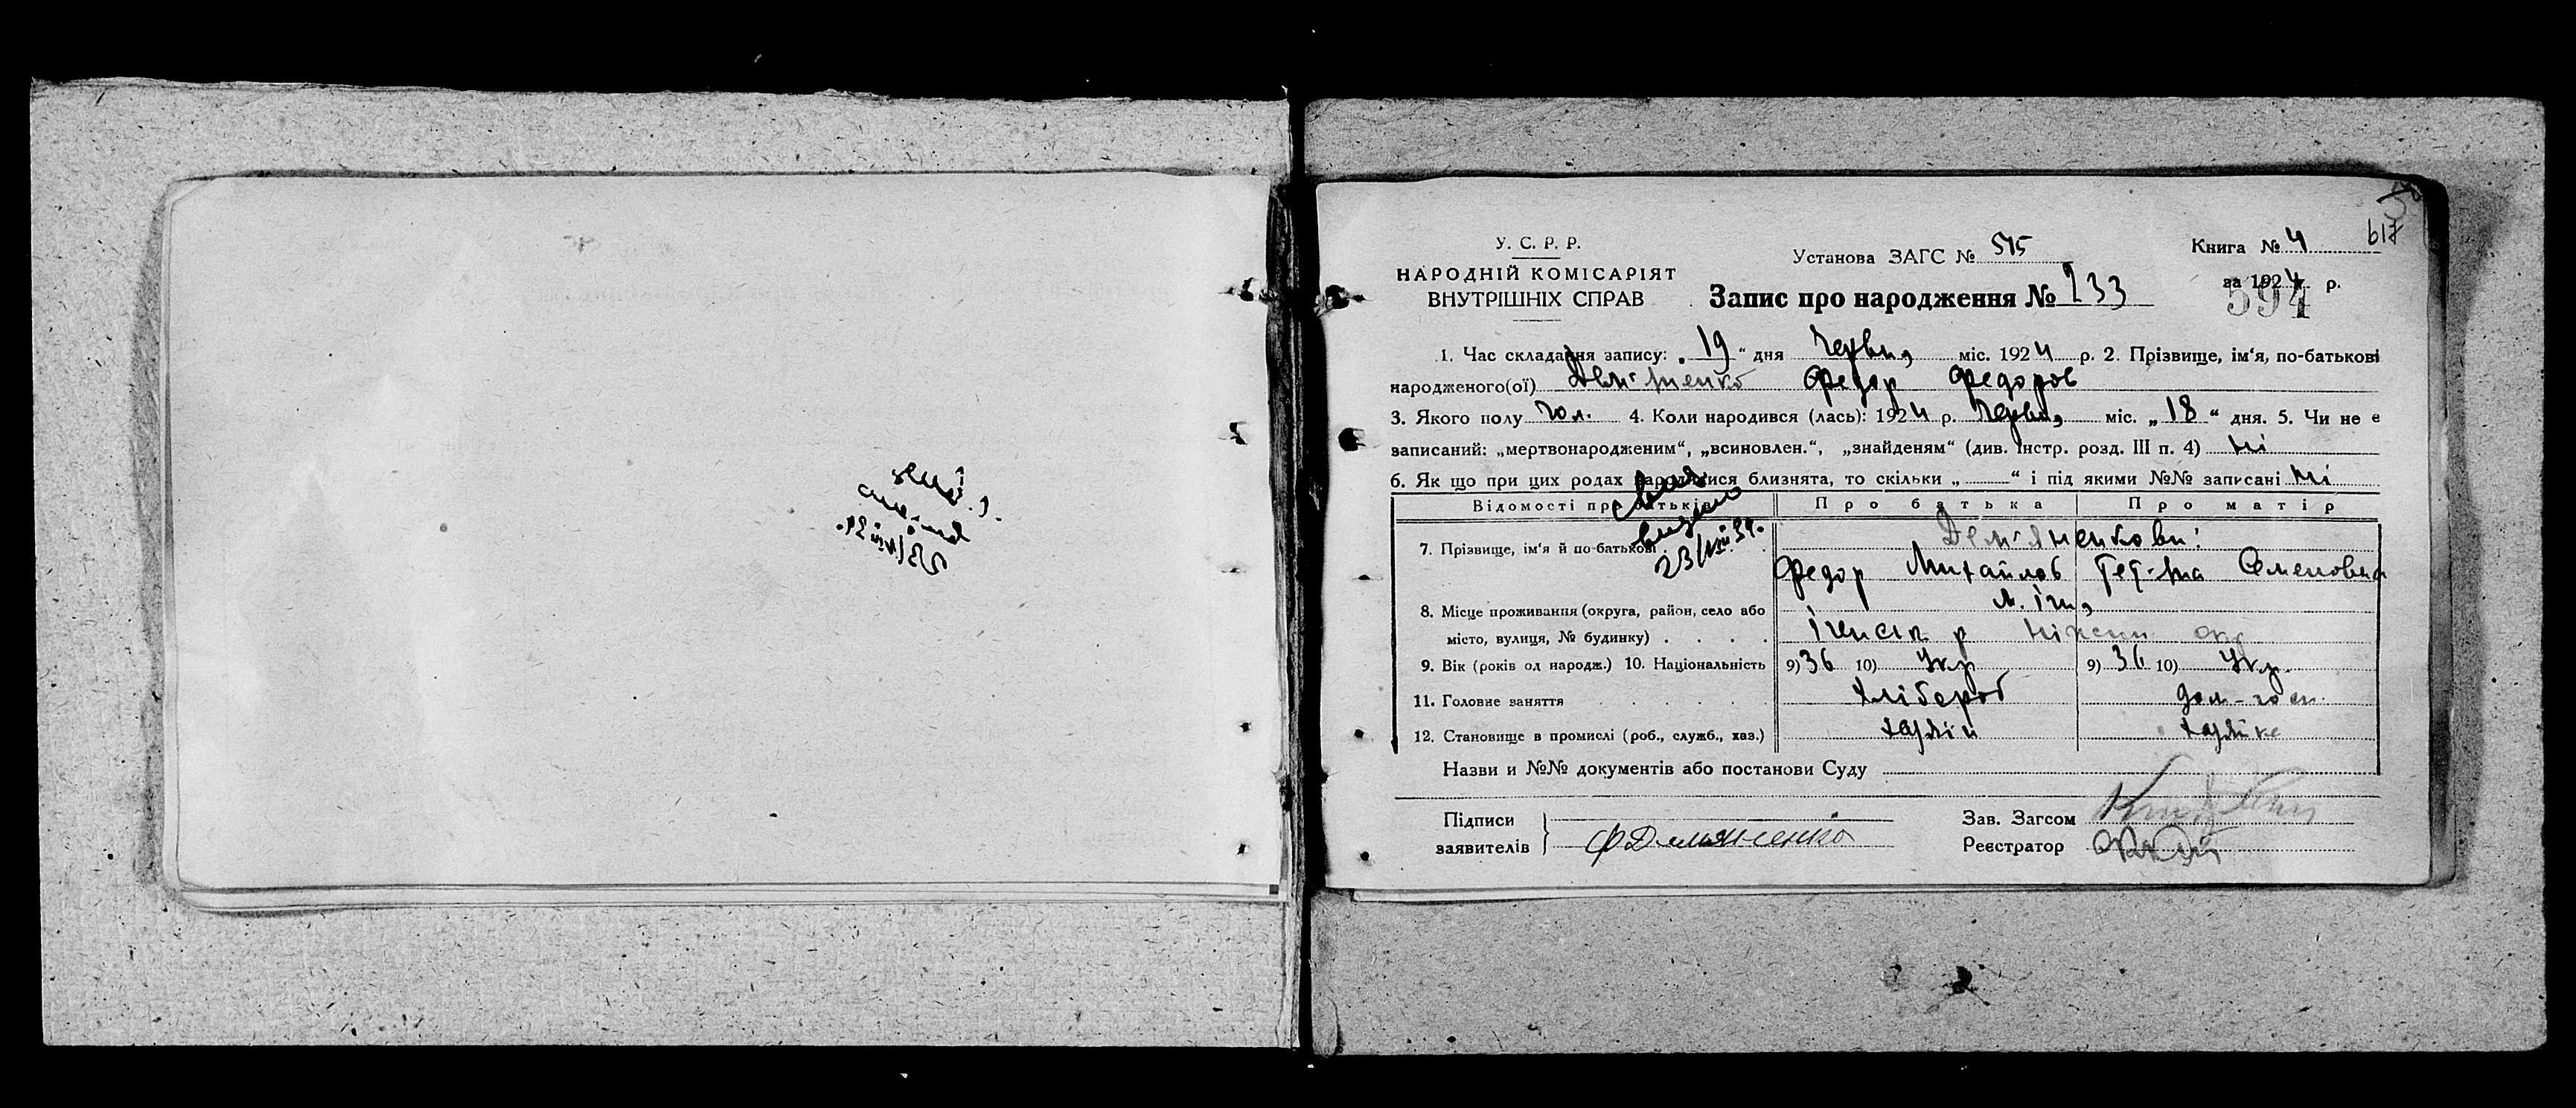 617
У. С. Р. Р.
НАРОДНІЙ КОМІСАРІЯТ
ВНУТРІШНІХ СПРАВ
Установа ЗАГС № 515
Книга № 4
за 1924 р.
594
Запис про народження № 233
1. Час складання запису: „19“ дня Червн, міс. 1924 р. 2. Прізвище, ім'я, по-батькові
народженого(ої) Дем'яненко Федор Федоров
3. Якого полу чол. 4. Коли народився (лась): 1924 р. Червн, міс. „18“ дня. 5. Чи не є
записаний: „мертвонародженим“, „всиновлен.“, „знайденям“ (див. Інстр. розд. III п. 4) Ні
6. Як що при цих родах народилися близнята, то скільки „ “ і під якими №№ записані Ні
Відомості про батьків Про батька Про матір
23/VIII 34.
7. Прізвище, ім'я й по-батькові Дем'яненкови:
Федор Михайлов Семеновна
8. Місце проживання (округа, район, село або м. Ічн,
місто, вулиця, № будинку) . . . . Ічнськ р Ніженськ окр
9. Вік (років од народж.) 10. Національність 9) 36 10) Укр 9) 36 10) Укр.
11. Головне заняття . . . . . Хлібороб дом-госп.
12. Становище в промислі (роб., служб., хаз.) хазяїн хазяйке
Назви и №№ документів або постанови Суду
Підписи
заявителів Ф Демяненко
Зав. Загсом
Реєстратор